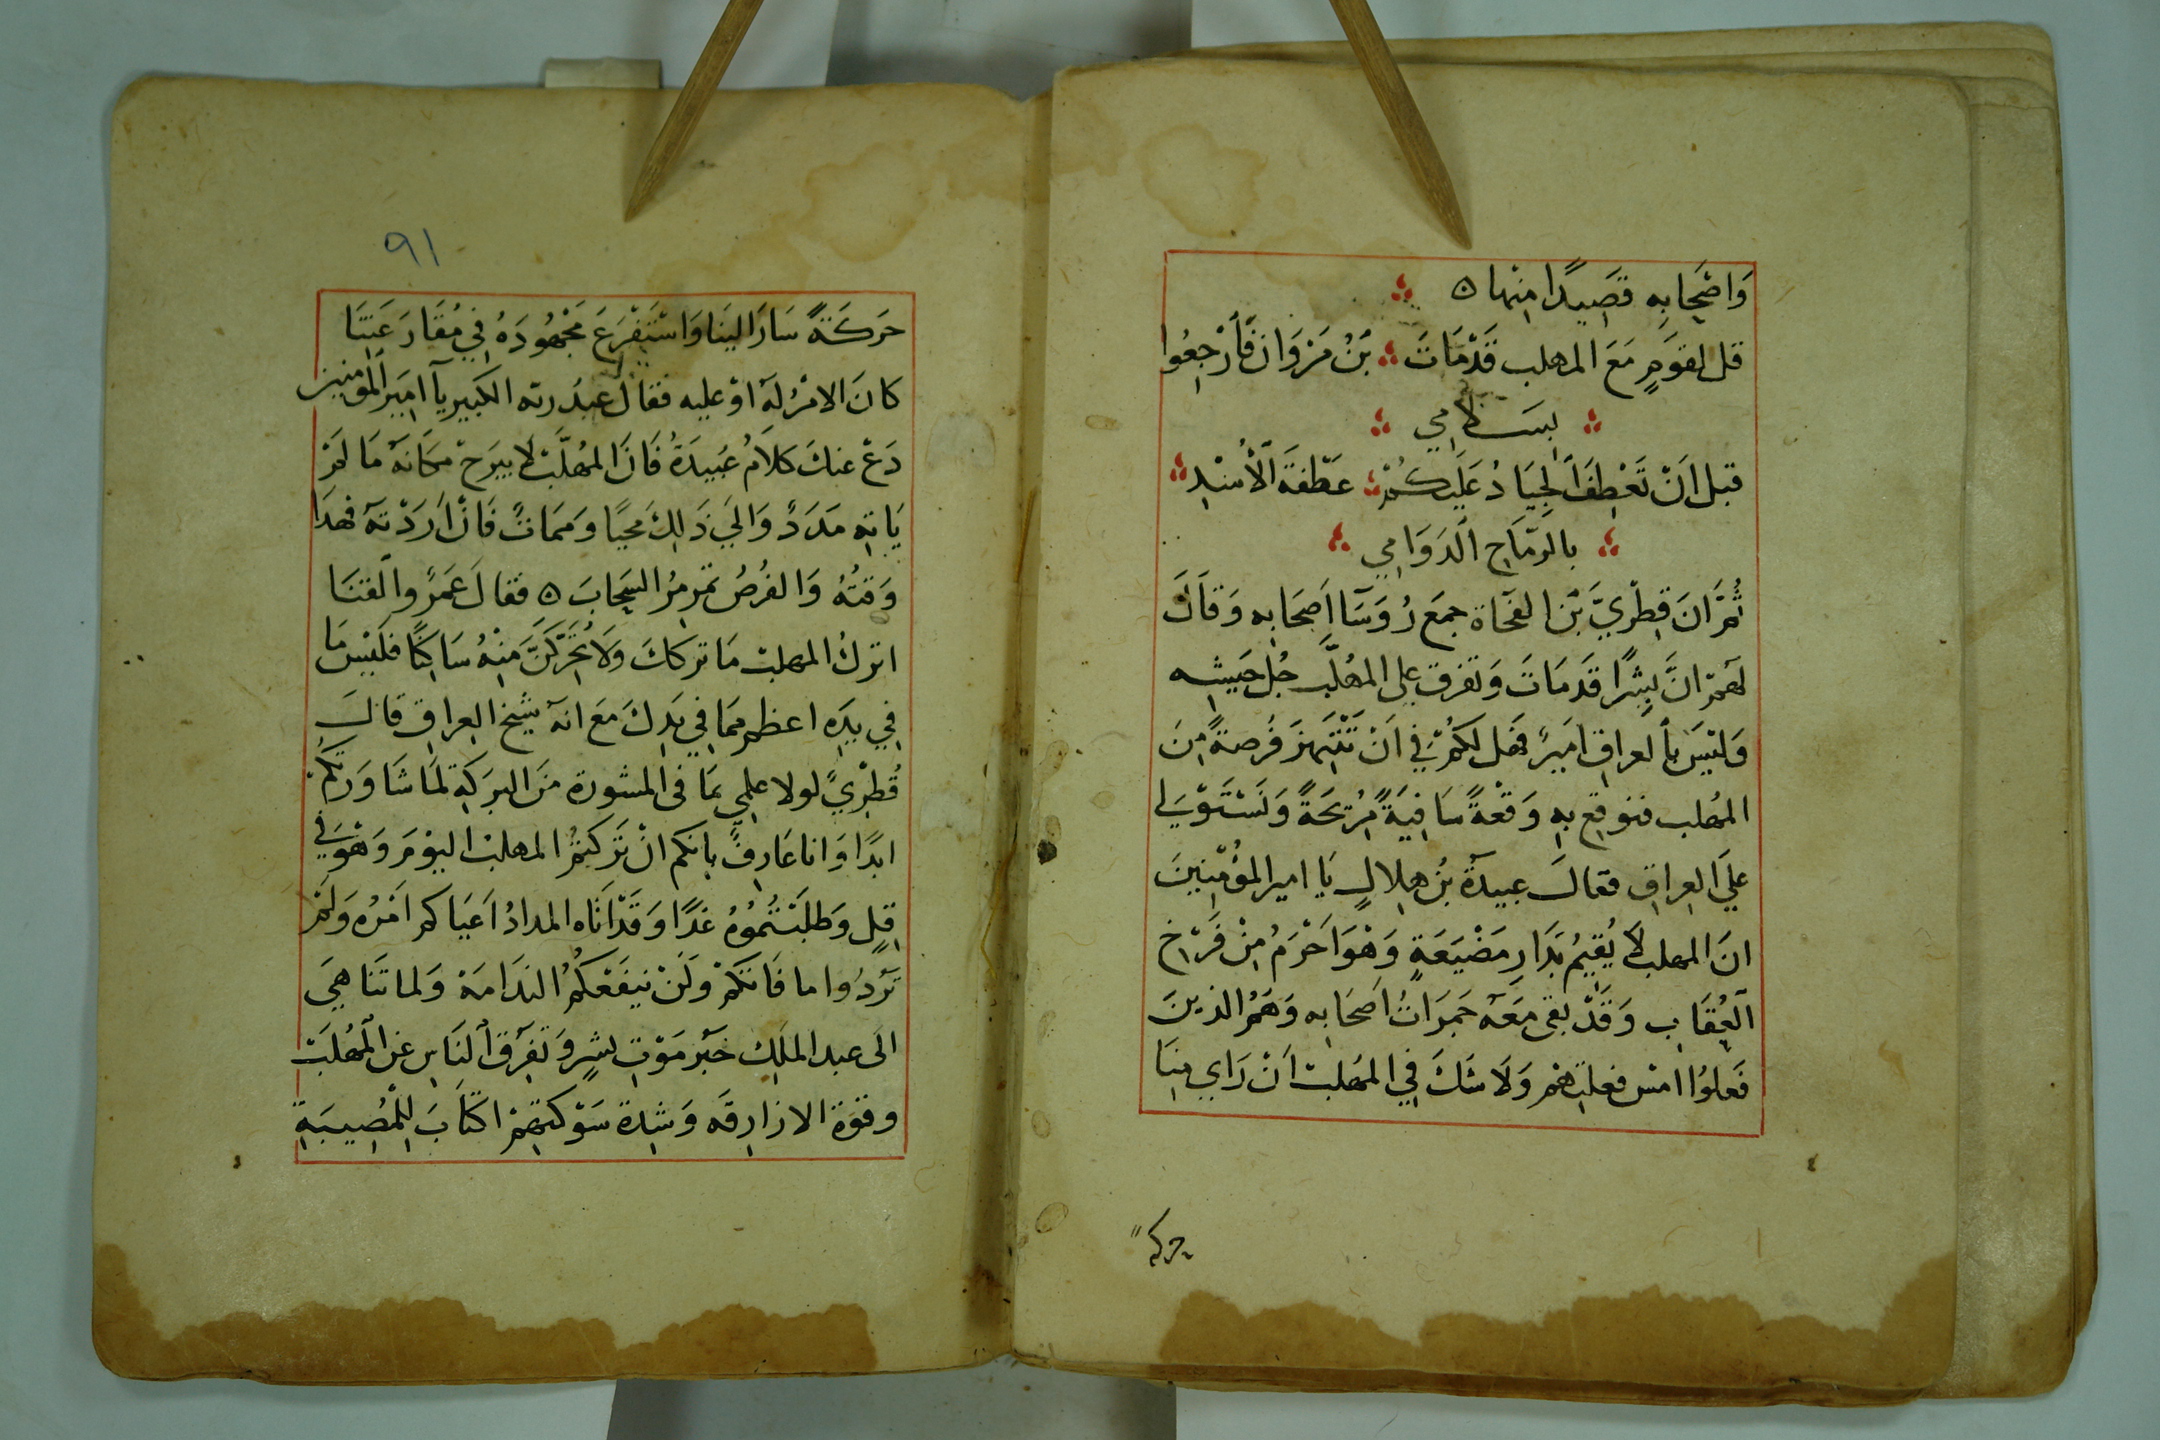 وَاصْحَابِه قَصِيدًا مِنْها ٥
قل لقومٍ مَعَ المهلب قَدْمَاتَ بْنُ مَرْوَانَ فَارْجِعُوا
بسَلامي
قبل اَنْ تَعْطِفَ الجِيَادُ عَلَيْكُمْ عَطْفَةَ الْأُسْدِ
بالرِمَاحِ الدَوَامِي
ثُمَّ اَنَ قِطْرِيَّ بْنَ الفجَاة جمَع رُوَسَآ اَصحَابِه وَقَالَ
لَهمْ انَّ بِشْرًا قَدمَاتَ وَتفرق علي المهُلَّب جُل جَيشِه
وَلَيْسَ بالعراق اميرٌ فَهل لكُمْ فِي اَنْ تَنْتَهِزَ فُرصةً مِنَ
المهُلب فنوقِع بِه وَقْعَةً سَافِيَةً مُرِيحَةً وَنَسْتَوْلِي
عَلَي العِراق فقالَ عبيدَةُ بْنُ هِلالٍ يَا امير المؤُمِنِينَ
انَ المهلب لَا يُقِيمُ بَدَارِ مَضْيَعَةٍ وَهْوَ اَحْرَمُ مِنْ فَرْخِ
العُقَابِ وَقَدْ بقى مَعَه جَمَرَاتُ اَصحَابِه وَهَمُ الذينَ
فَعلوُا امْس فعلتهْم وَلَا شَكَ فِي المهَلبْ اَنْ رَاي مِنَا
حركة
٩١
حَرَكَةً سَارَ الينَا وَاسْتَفْرَغَ مَجْهُودَهُ فِي مُقَارَعَتِنَا
كانَ الامْرُ لَهَ اوْ عليه فقالَ عبدُ ربه الكَبِير يآ امِيَر المْؤمنِين
دَعْ عنكَ كلَامُ عُبيدَةُ فَانَ المهُلَّبْ لَا يبرَحْ مَكَانَهَ مَا لَمْ
يَاتِه مَدَدٌ وَالِيَ ذَالِكَ محيًا وَمَمَاتٌ فَانْ اَرَدْته فَهذَا
وَقتُهُ وَالفُرصُ تمرمرُ السَحابَ ٥ فقالَ عَمَرٌو القنَا
اتركُ المهلبْ مَا تركاكَ وَلَا تُحَرِّكَنَّ مِنْهُ سَاكِنًا فلَيْسَ مَا
فِي يدِه اعظم ممَا فِي يَدِكَ مَعَ انهَ شيخ العِراق قالَ
قُطِرِيٌ لولا علمِي بمَا في المشورة مَنَ البرَكَةِ لمَا شَاوَرتكُمْ
ابدًا وَانا عَارِفٌ بانكم انْ تَركتمُ المهلبْ اليوْمَ وَهْوَ فِي
قِلٍ وَطَلَبْتُمُوُه غدًا وَقَدْ اَتَاه المدادُ اَعيَاكم امَرْه وَلمَ
تَردُوا ما فَاتكمْ وَلَنْ ينفَعَكمُ الندَامَة وَلما تنَا هَي
الَى عبد الملَكِ خَبَر مَوْتِ بشرٍ وَتفَرُق النَاسِ عن المهُلَبْ
وقوَة الازارِقَه وَشِدة شَوْكتهِمْ اكتابَ لِلمُصِيبَةِ